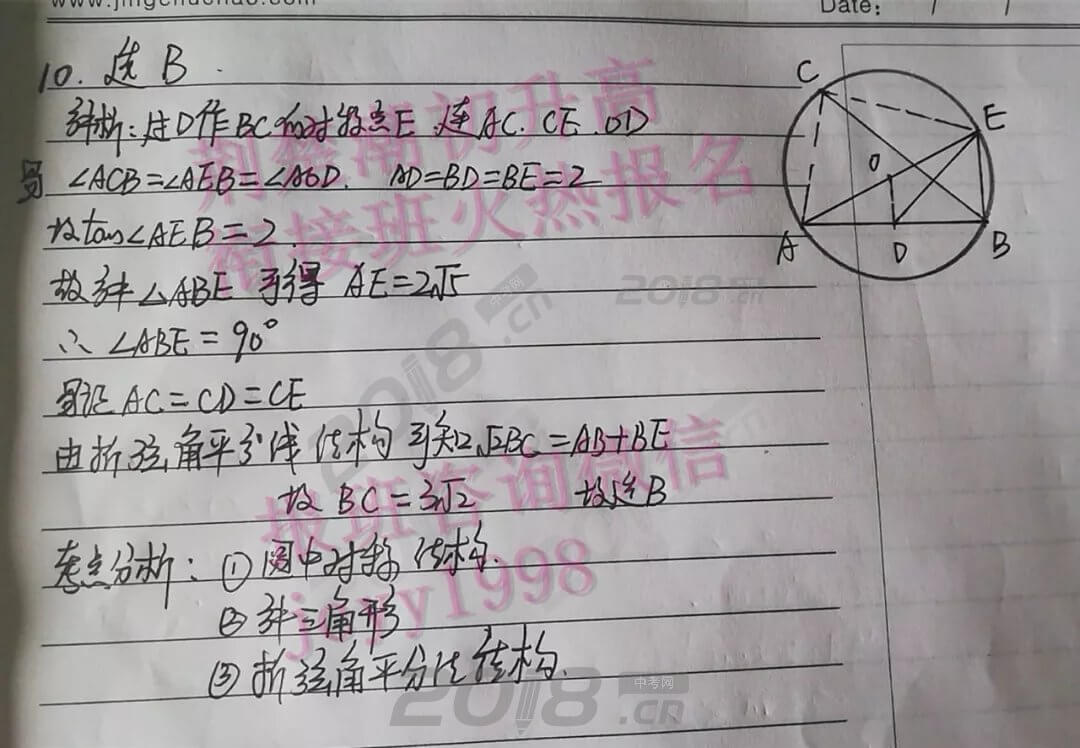 www.jingchuchao.com
Date: / /
10. 选 B.
解析:过D作BC的对称点E 连AC. CE. OD
易 ∠ACB=∠AEB=∠AOD. AD=BD=BE=2
故tan∠AEB=2.
故解△ABE 可得 AE=2√5
∴ ∠ABE=90°
易证AC=CD=CE
由折弦,角平分线 结构 可知 √2BC=AB+BE
故 BC=3√2 故选B
考点分析:①圆中对称 结构.
②解三角形
③折弦角平分线 结构.
C
E
O
A
D
B
荆楚潮初升高
衔接班火热报名
报班咨询微信
jzyy1998
2018.cn
中考网
2018.cn
中考网
2018.cn